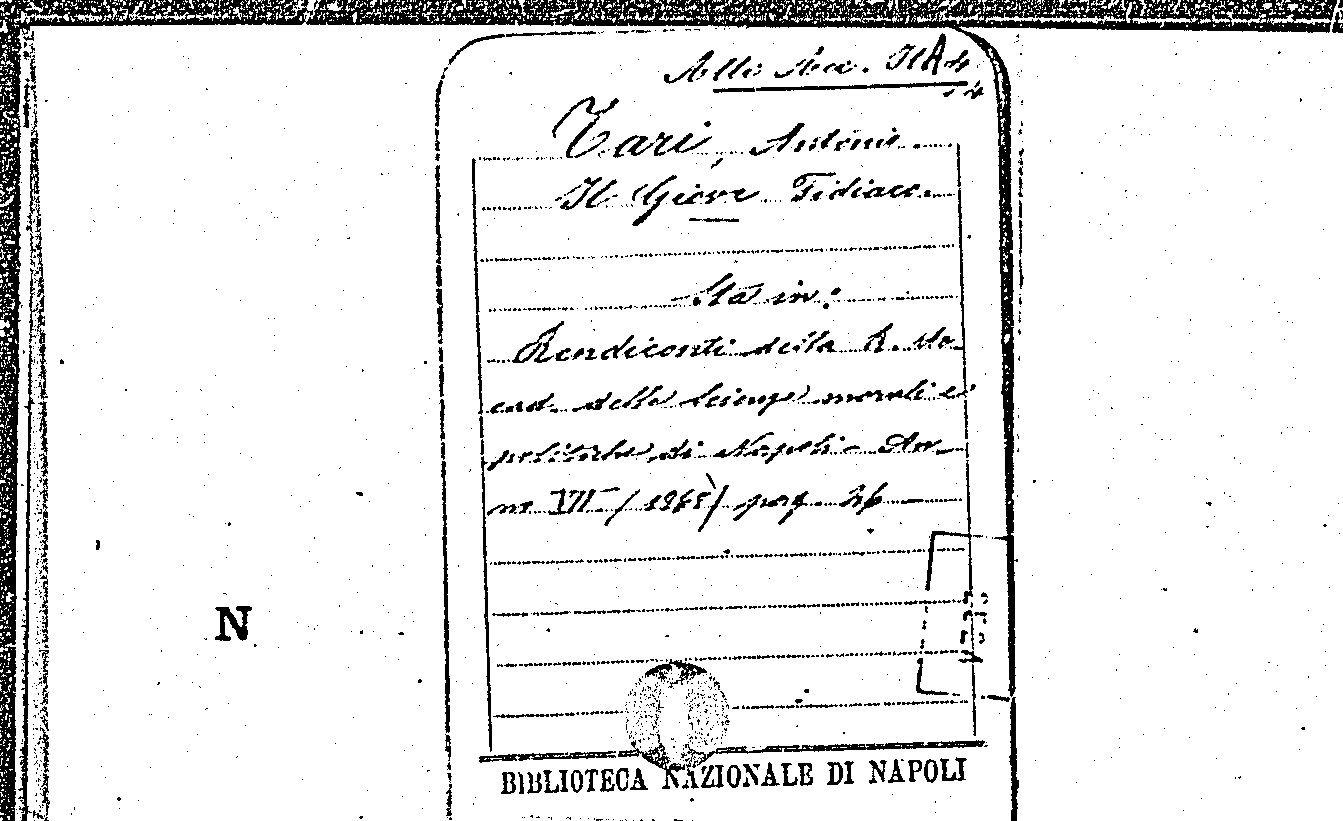 Tari, Antonio.
Il Giove Fidiaco.
Sta in:
Rendiconti della R. Ac-
cad. delle Scienze morali e
politiche di Napoli - An-
no VII pag. 26
N
BIBLIOTECA NAZIONALE DI NAPOLI